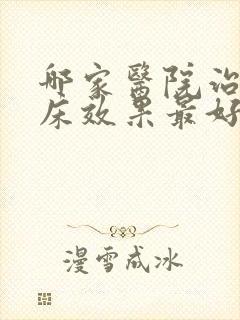 哪家醫院治
床效果最好
漫雪成冰